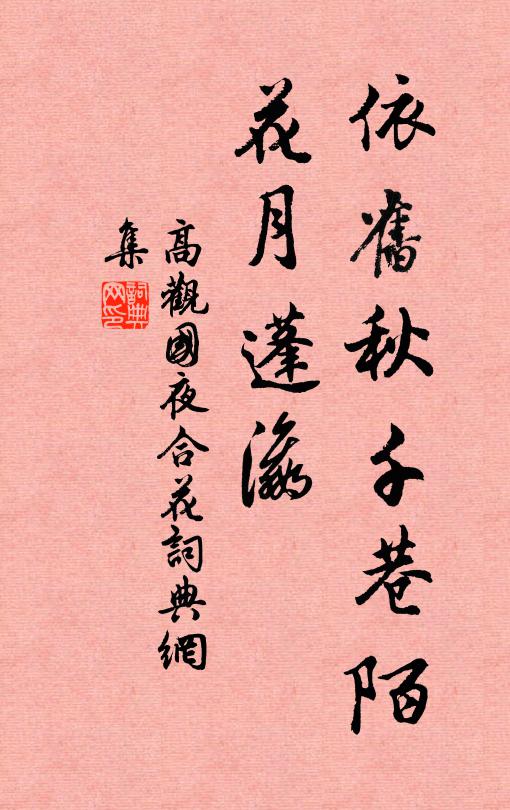 依舊秋千巷陌
花月蓬瀛
高觀國夜合花詞典網
集
詞典網印